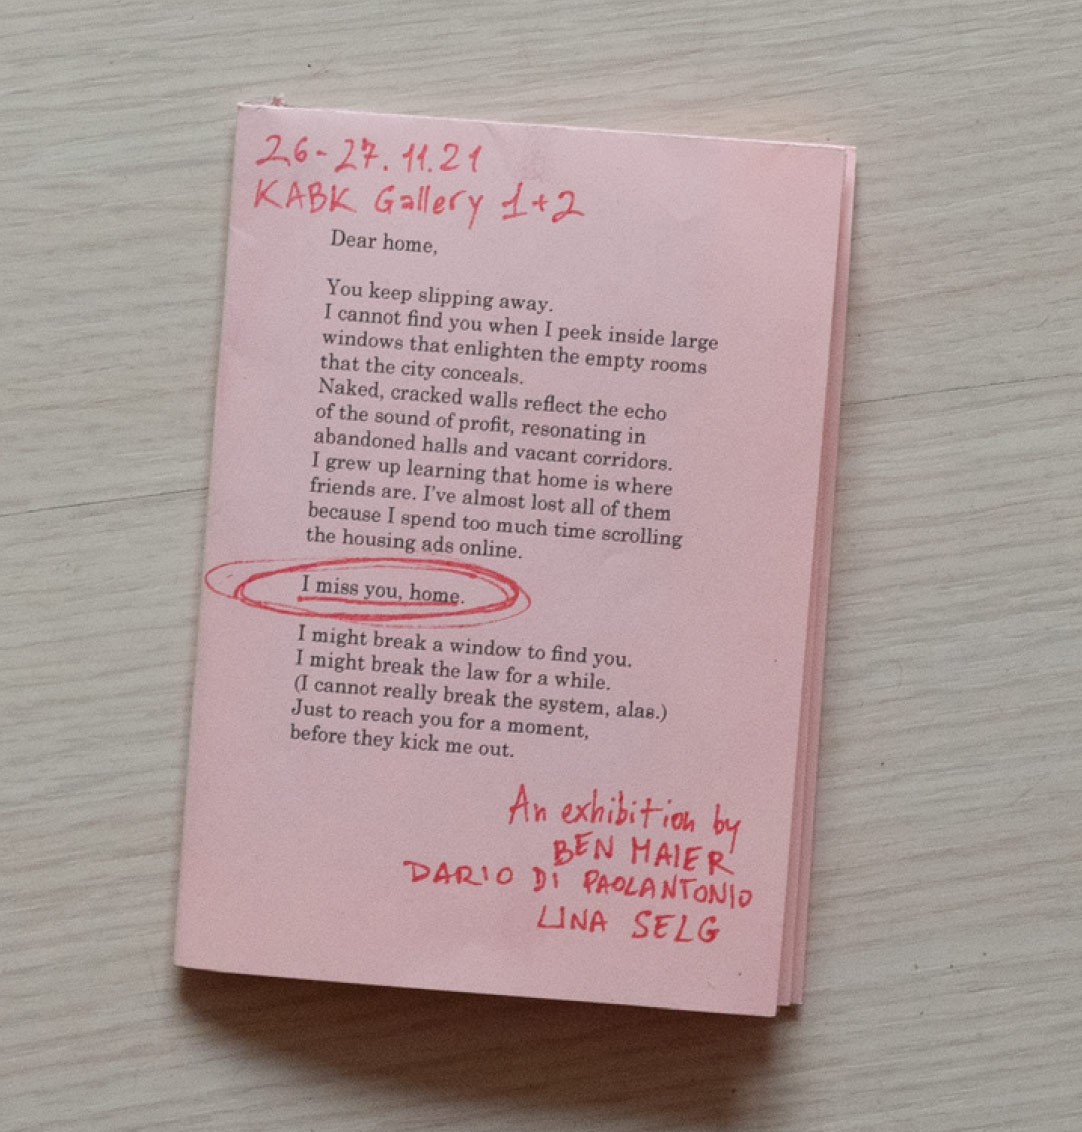 26-27.11.21
KABK Gallery 1+2
Dear home,
You keep slipping away.
I cannot find you when I peek inside large
windows that enlighten the empty rooms
that the city conceals.
Naked, cracked walls reflect the echo
of the sound of profit, resonating in
abandoned halls and vacant corridors.
I grew up learning that home is where
friends are. I've almost lost all of them
because I spend too much time scrolling
the housing ads online.
I miss you, home.
I might break a window to find you.
I might break the law for a while.
(I cannot really break the system, alas.)
Just to reach you for a moment,
before they kick me out.
An exhibition by
BEN MAIER
DARIO DI PAOLANTONIO
LINA SELG